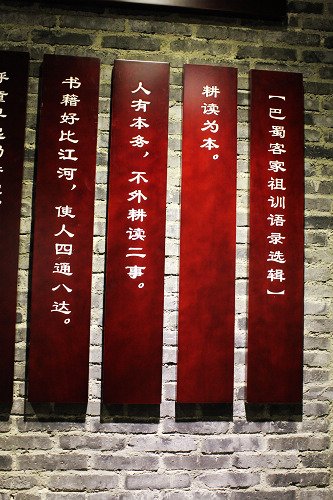 【巴蜀客家祖训语录选辑】
耕读为本。
人有本务，不外耕读二事。
书籍好比江河，使人四通八达。